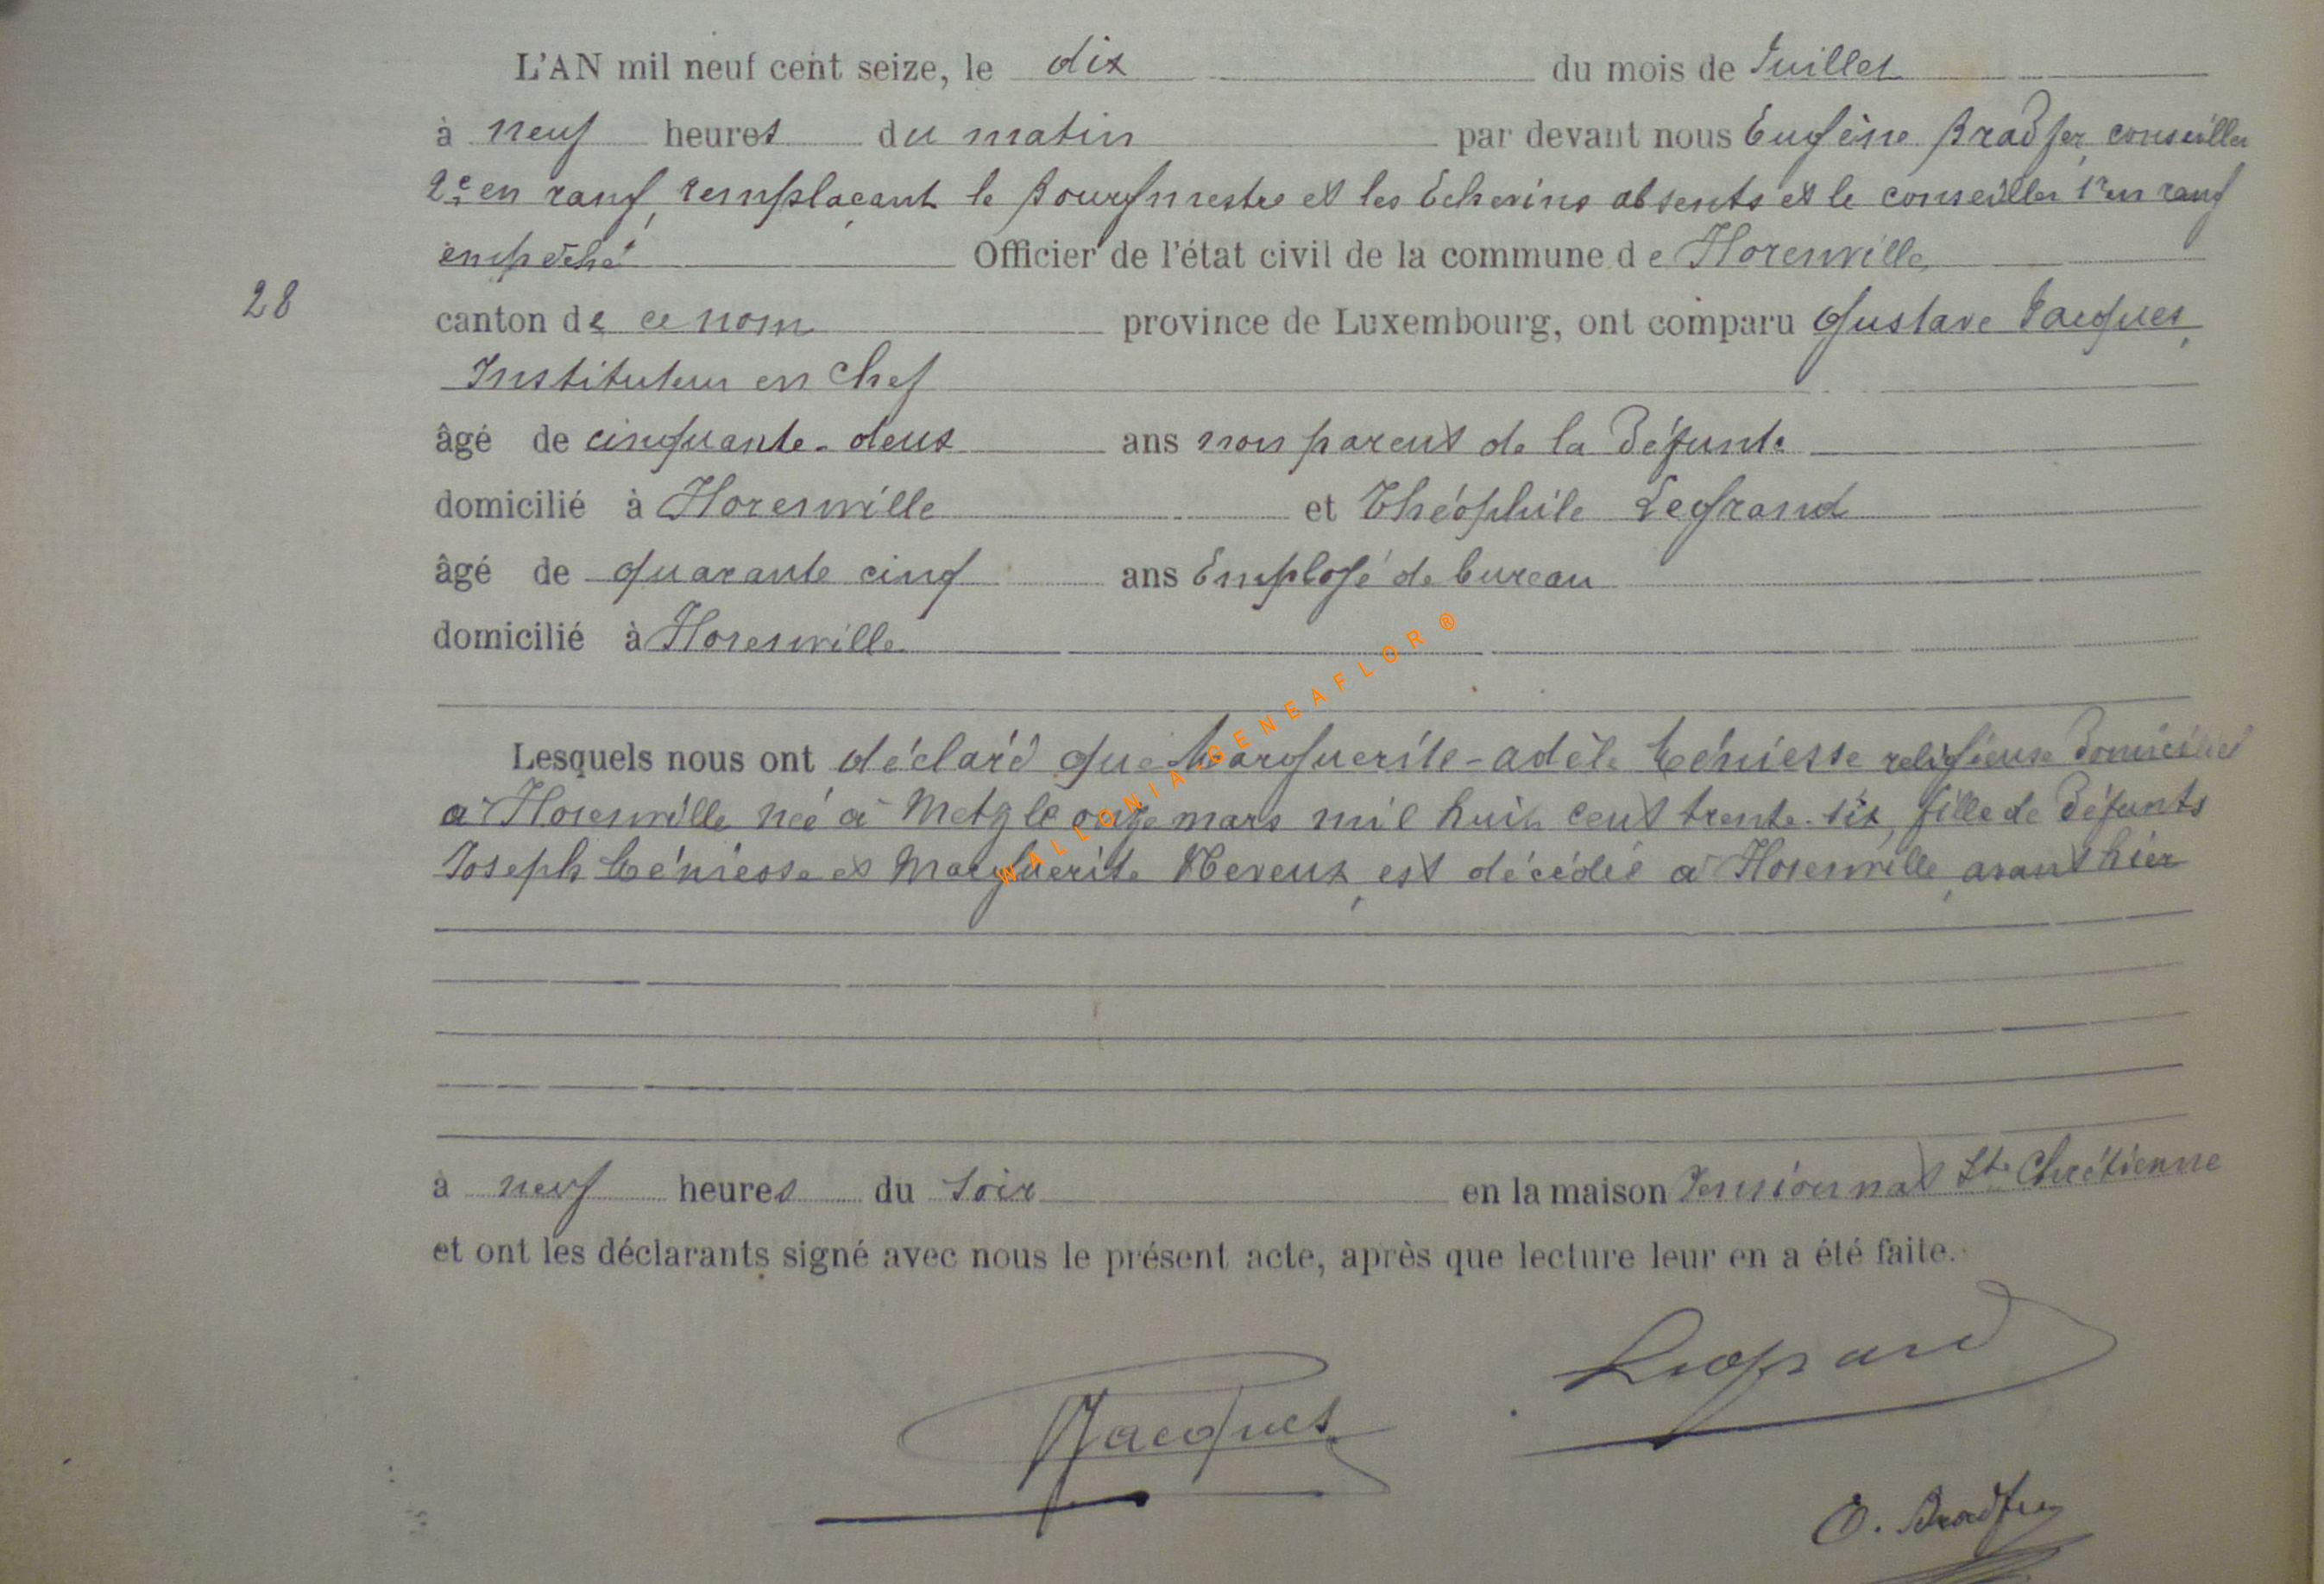 L'AN mil neuf cent seize, le dix du mois de Juillet
à neuf heures du matin par devant nous Eugène Bradfer, conseiller
2e en rang, remplaçant le Bourgmestre et les Echevins absents et le conseiller 1r en rang
empêché Officier de l'état civil de la commune de Florenville
28
canton de ce nom province de Luxembourg, ont comparu Gustave Jacques,
Instituteur en chef
âgé de cinquante-deux ans non parent de la défunte
domicilié à Florenville et Théophile Legrand
âgé de quarante cinq ans Employé de bureau
domicilié à Florenville
Lesquels nous ont déclaré que Marguerite-Adèle Céniesse religieuse domiciliée
à Florenville née à Metz le onze mars mil huit cent trente-six, fille de défunts
Joseph Céniesse et Marguerite Neveux, est décédée à Florenville, avant hier
à neuf heures du soir en la maison Pensionnat Ste Chrétienne
et ont les déclarants signé avec nous le présent acte, après que lecture leur en a été faite.
Legrand
Jacques
E. Bradfer
WALLONIA GENEAFLOR ®